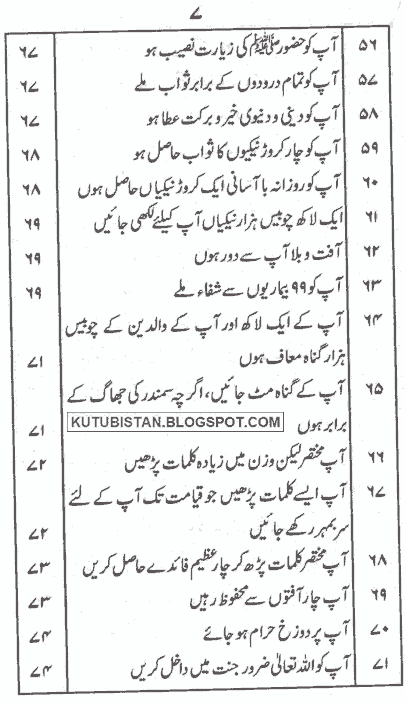 ۷
۵۶ آپ کو حضور ﷺ کی زیارت نصیب ہو ۶۷
۵۷ آپ کو تمام درودوں کے برابر ثواب ملے ۶۷
۵۸ آپ کو دینی و دنیوی خیر و برکت عطا ہو ۶۷
۵۹ آپ کو چار کروڑ نیکیوں کا ثواب حاصل ہو ۶۸
۶۰ آپ کو روزانہ باآسانی ایک کروڑ نیکیاں حاصل ہوں ۶۸
۶۱ ایک لاکھ چوبیس ہزار نیکیاں آپ کیلئے لکھی جائیں ۶۹
۶۲ آفت و بلا آپ سے دور ہوں ۶۹
۶۳ آپ کو ۹۹ بیماریوں سے شفاء ملے ۶۹
۶۴ آپ کے ایک لاکھ اور آپ کے والدین کے چوبیس
ہزار گناہ معاف ہوں ۷۱
۶۵ آپ کے گناہ مٹ جائیں، اگرچہ سمندر کی جھاگ کے
KUTUBISTAN.BLOGSPOT.COM
برابر ہوں ۷۱
۶۶ آپ مختصر لیکن وزن میں زیادہ کلمات پڑھیں ۷۲
۶۷ آپ ایسے کلمات پڑھیں جو قیامت تک آپ کے لئے
سربمہر رکھے جائیں ۷۲
۶۸ آپ مختصر کلمات پڑھ کر چار عظیم فائدے حاصل کریں ۷۳
۶۹ آپ چار آفتوں سے محفوظ رہیں ۷۳
۷۰ آپ پر دوزخ حرام ہو جائے ۷۴
۷۱ آپ کو اللہ تعالیٰ ضرور جنت میں داخل کریں ۷۴